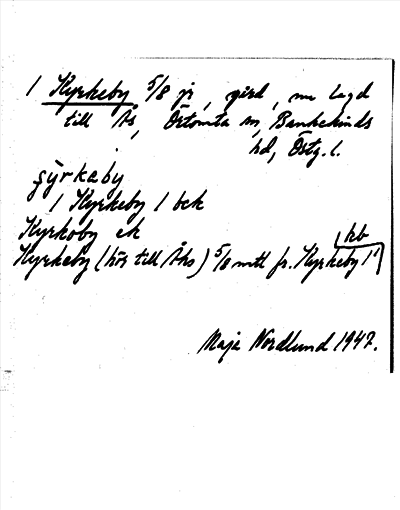 1 Kyrkeby 5/8 fr, gård, nu lagd
till Ås, Örtomta sn, Bankekinds
hd, Östg. l.
çyrkaby
1 Kyrkeby 1 bek
Kyrkoby ek
hb
Kyrkeby (hör till Åhs) 5/8 mtl fr. Kyrkeby 1
Maja Nordlund 1947.